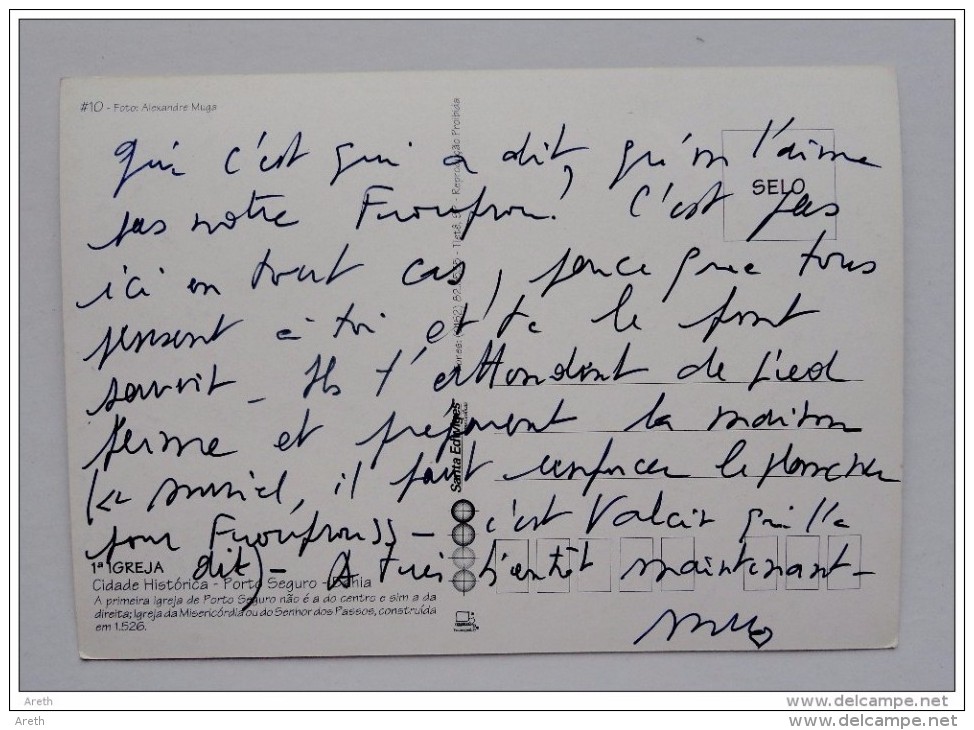 #10 - Foto: Alexandre Muga
SELO
Qui c'est qui a dit, qu'on t'aime
pas notre Froufrou! C'est pas
ici en tout cas, parce que tous
pensent à toi et te le font
savoir - Ils t'attendent de pied
ferme et préparent la maison
(" Muriel, il faut renforcer le plancher
pour Froufrou" - c'est Valair qui l'a
dit) - A très bientôt maintenant -
1ª IGREJA
Cidade Histórica - Porto Seguro - Bahia
A primeira Igreja de Porto Seguro não é a do centro e sim a da
direita; Igreja da Misericórdia ou do Senhor dos Passos, construída
em 1.526.
Santa Edwiges
Reprodução Proibida
Areth
Areth
http://www.delcampe.net
http://www.delcampe.net